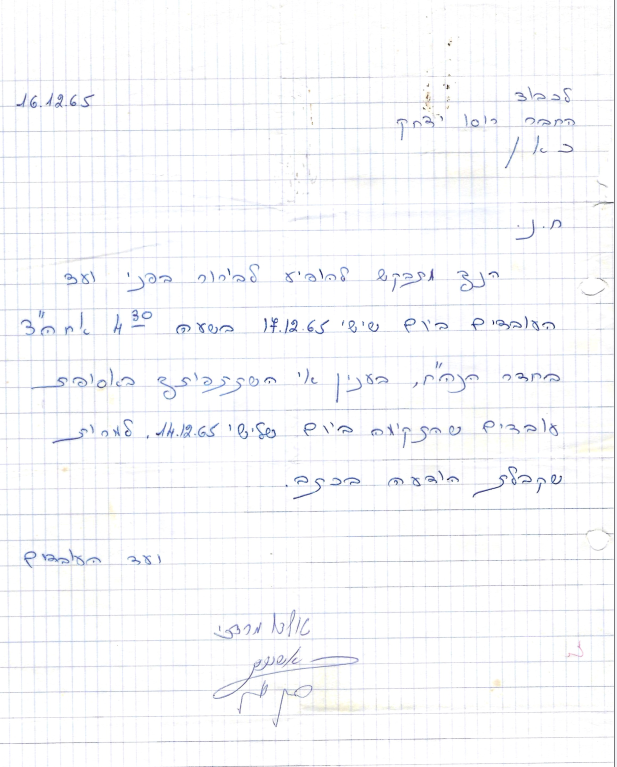 16.12.65
לכבוד
החבר רוסו יצחק
כאן
ח.נ.
הנך מתבקש להופיע לבירור בפני ועד
העובדים ביום שישי 17.12.65 בשעה 4³⁰ אחה"צ
בחדר הנה"ח, בענין אי השתתפותך באסיפת
עובדים שהתקימה ביום שלישי 14.12.65, למרות
שקבלת הודעה בכתב.
ועד העובדים